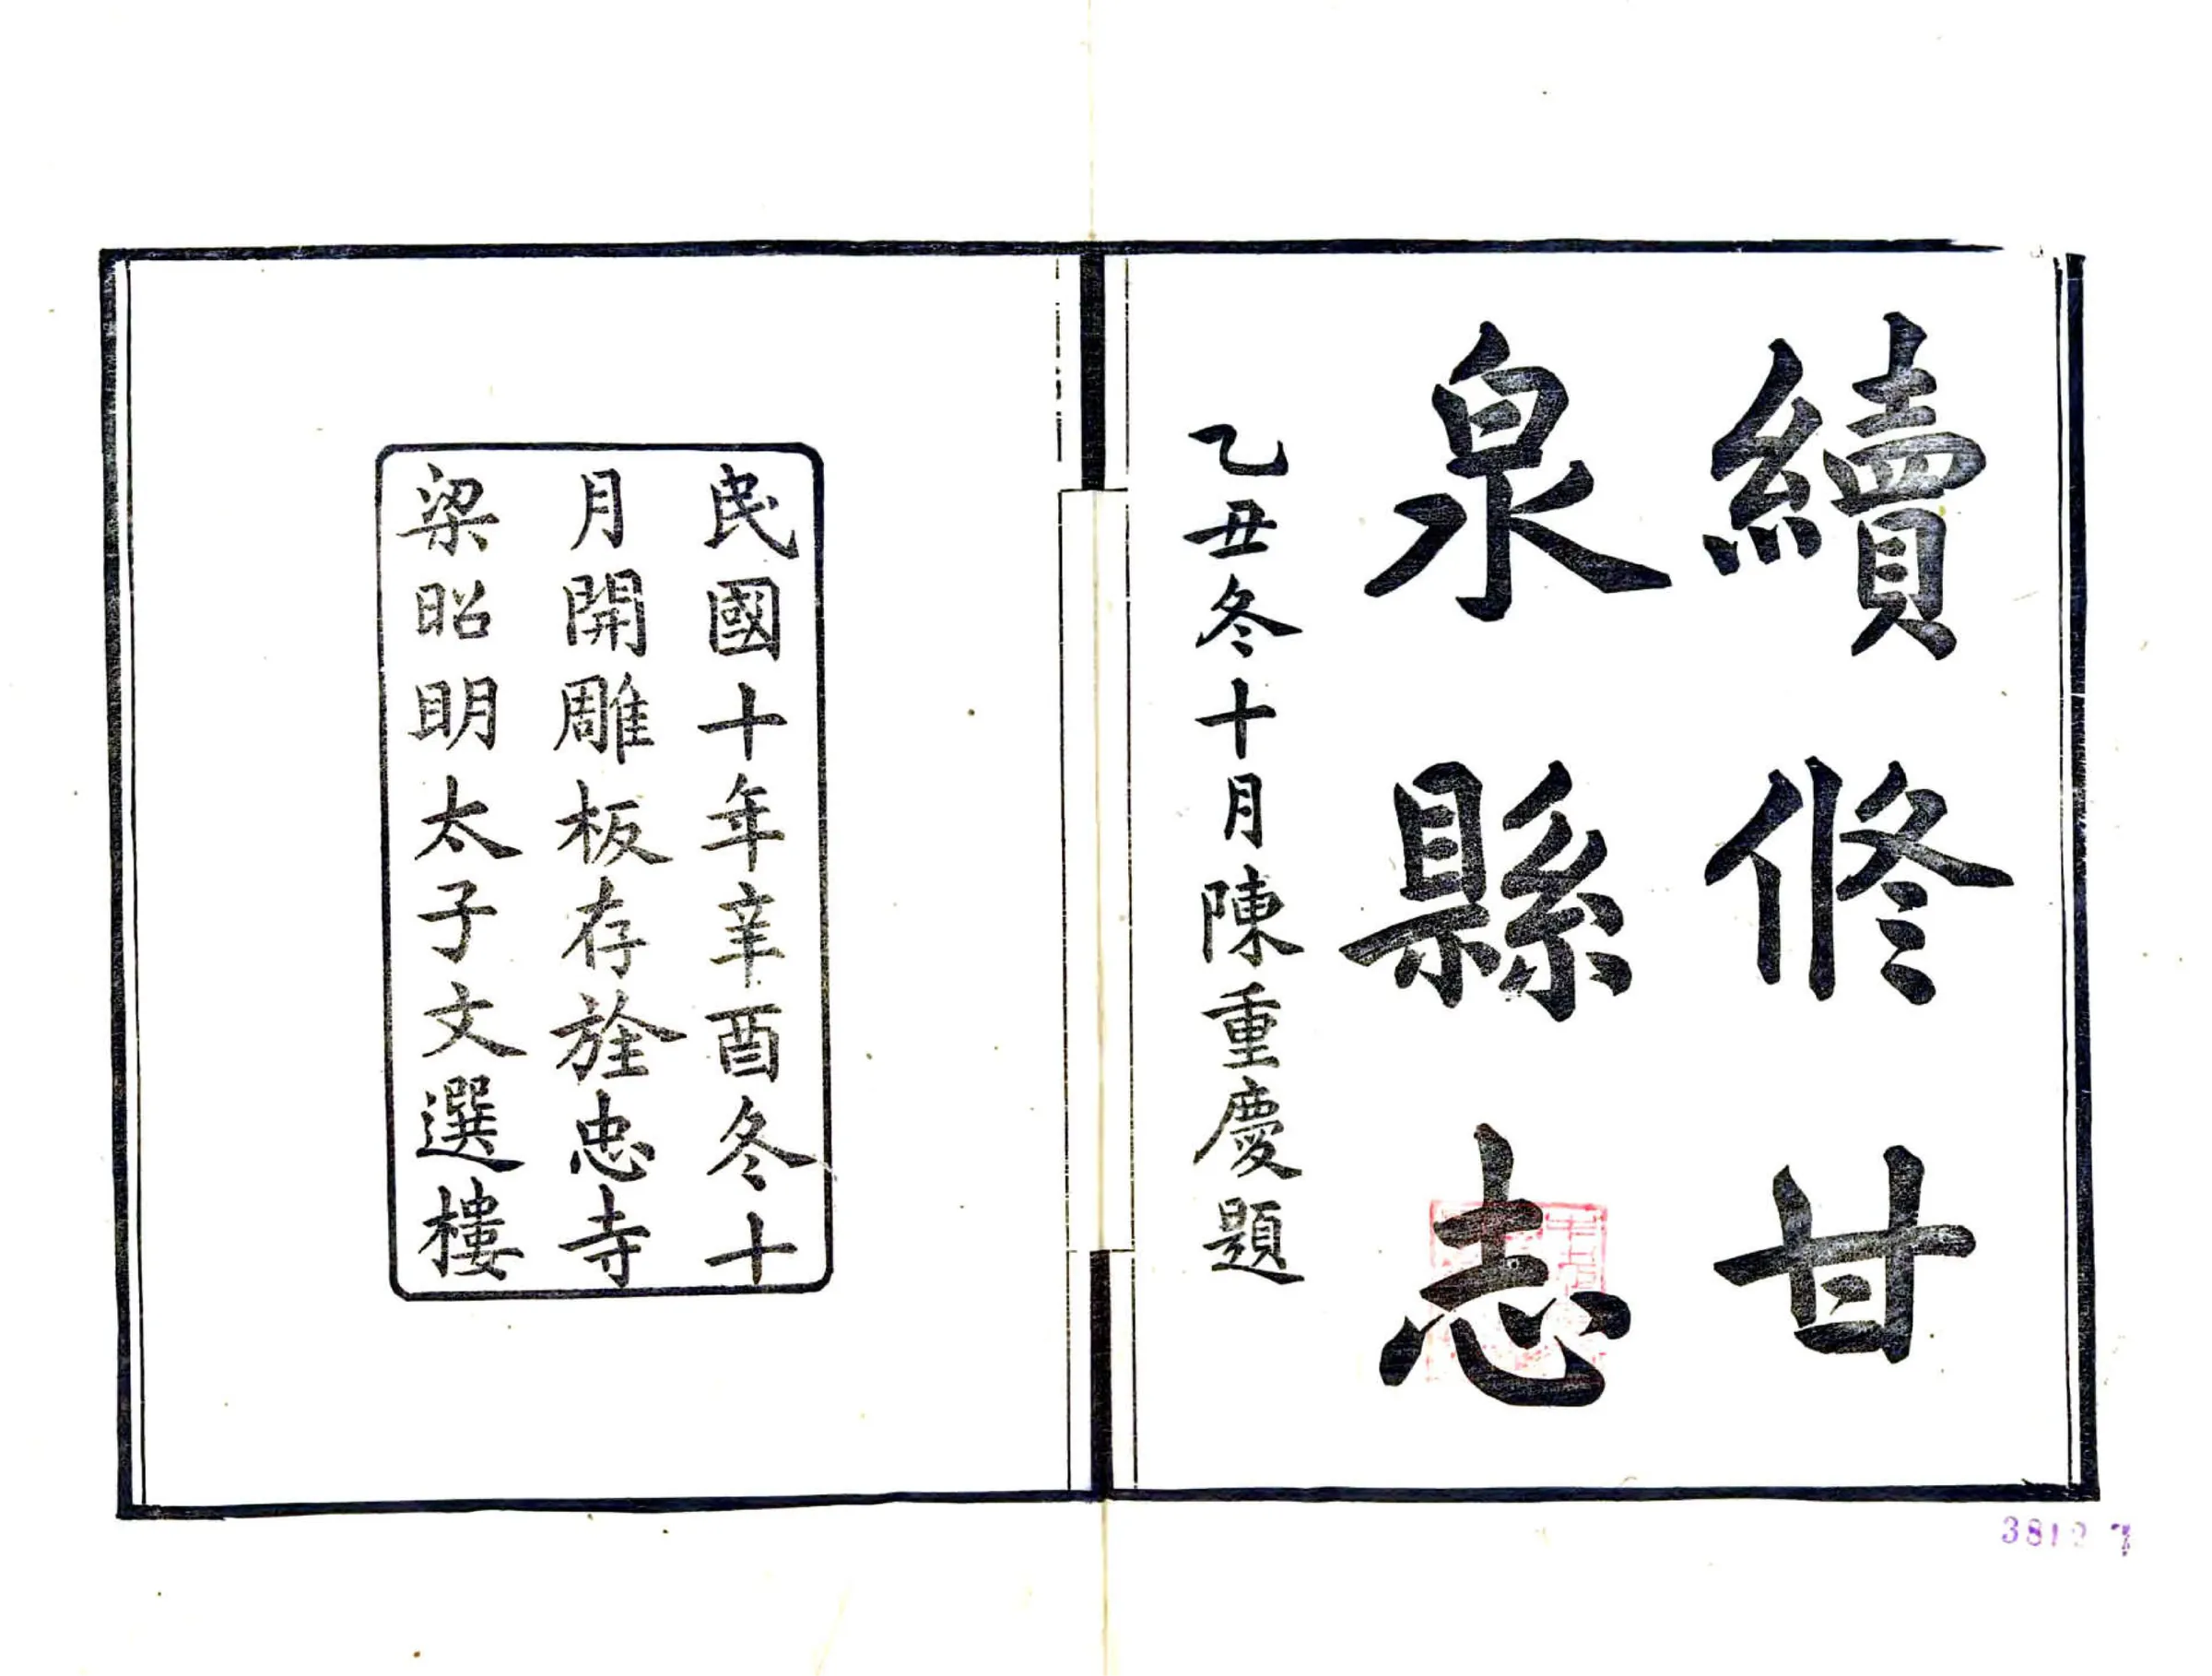 續修甘
泉縣志
乙丑冬十月陳重慶題
民國十年辛酉冬十
月開雕板存旌忠寺
梁昭明太子文選樓